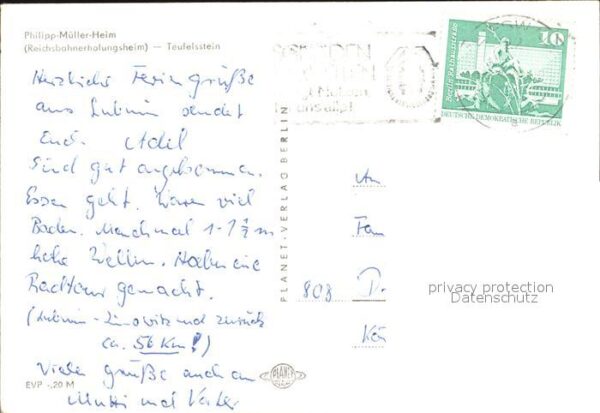 Philipp-Müller-Heim
(Reichsbahnerholungsheim) — Teufelsstein
Herzliche Feriengrüße
aus Lubmin sendet
Euch Adil
Sind gut angekommen.
Essen geht. Waren viel
Baden. Manchmal 1-1 1/2 m
hohe Wellen. Haben eine
Radtour gemacht.
(Lubmin - Zinnowitz und zurück
ca. 56 Km!)
Viele Grüße auch an
Mutti und Vater
EVP -,20 M
PLANET-VERLAG BERLIN
PLANET
10
Berlin, Rathausstraße
DEUTSCHE DEMOKRATISCHE REPUBLIK
An
Fam
808 D.
Kön
privacy protection
Datenschutz